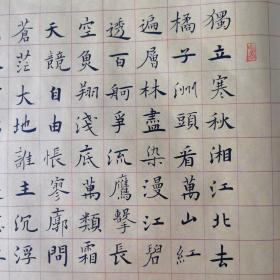 獨立寒秋湘江北去
橘子洲頭看萬山紅
遍層林盡染漫江碧
透百舸爭流鷹擊長
空魚翔淺底萬類霜
天競自由悵寥廓問
蒼茫大地誰主沉浮